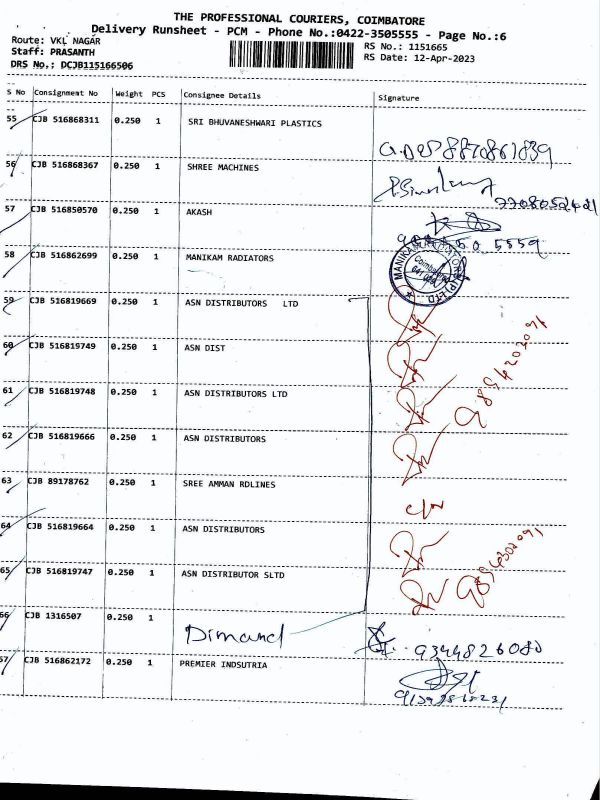 THE PROFESSIONAL COURIERS, COIMBATORE
Delivery Runsheet - PCM - Phone No.:0422-3505555 - Page No.:6
Route: VKL NAGAR
RS No.: 1151665
Staff: PRASANTH
RS Date: 12-Apr-2023
DRS No.: DCJB115166506
S No Consignment No Weight PCS Consignee Details Signature
55 CJB 516868311 0.250 1 SRI BHUVANESHWARI PLASTICS
8870861839
56 CJB 516868367 0.250 1 SHREE MACHINES
57 CJB 516850570 0.250 1 AKASH
58 CJB 516862699 0.250 1 MANIKAM RADIATORS
59 CJB 516819669 0.250 1 ASN DISTRIBUTORS LTD
60 CJB 516819749 0.250 1 ASN DIST
61 CJB 516819748 0.250 1 ASN DISTRIBUTORS LTD
62 CJB 516819666 0.250 1 ASN DISTRIBUTORS
63 CJB 89178762 0.250 1 SREE AMMAN RDLINES
64 CJB 516819664 0.250 1 ASN DISTRIBUTORS
65 CJB 516819747 0.250 1 ASN DISTRIBUTOR SLTD
66 CJB 1316507 0.250 1 Dimand 9344826080
67 CJB 516862172 0.250 1 PREMIER INDSUTRIA